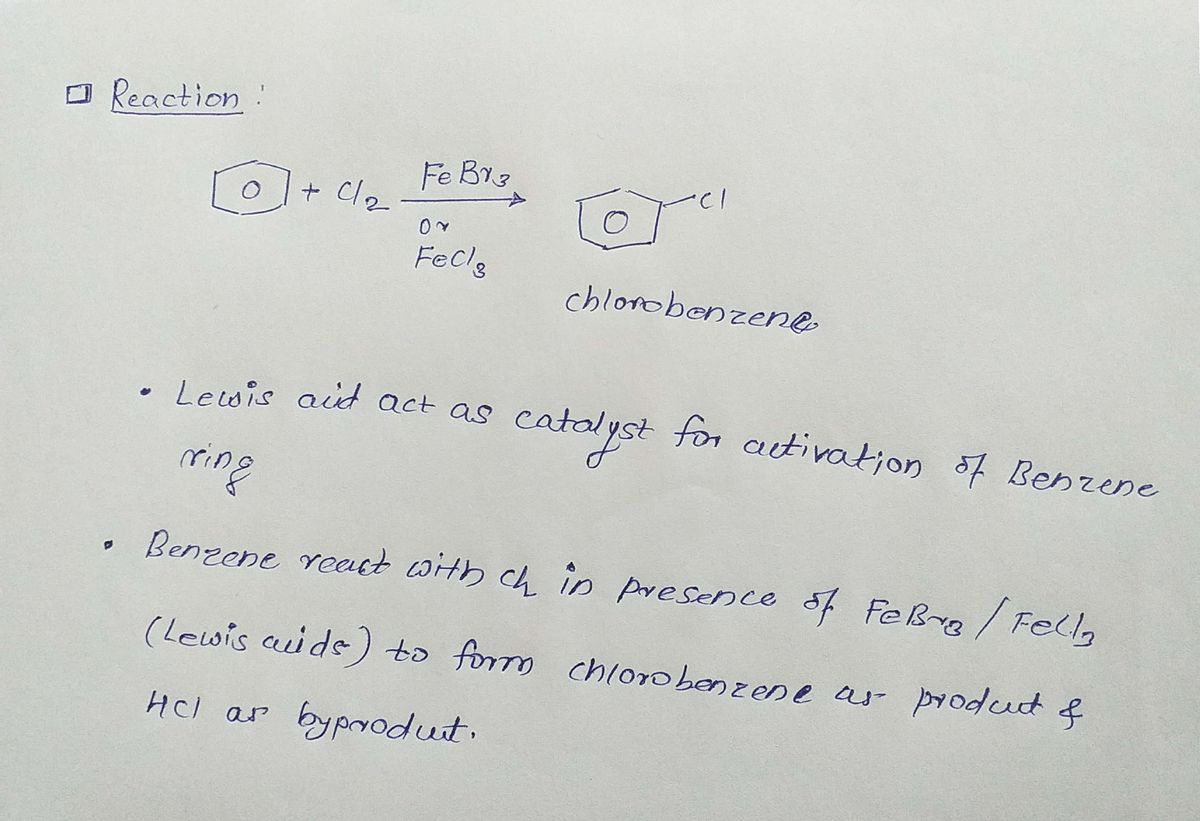 Reaction :
+ Cl2 FeBr3 Cl
or
FeCl3
chlorobenzene
• Lewis acid act as catalyst for activation of Benzene
ring
• Benzene react with Cl2 in presence of FeBr3 / FeCl3
(Lewis acids) to form chlorobenzene as product &
HCl as byproduct.